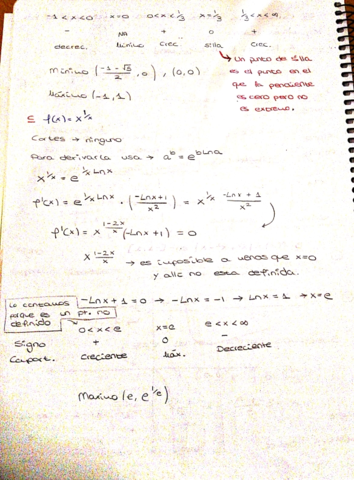 -1<x<0 x=0 0<x<1/3 x=1/3 1/3<x<∞
- NA + 0 +
decrec. Mínimo Crec silla Crec.
Un punto de silla
es el punto en el
que la pendiente
es cero pero no
es extremo.
Mínimo (-1-√5/2, 0), (0,0)
Máximo (-1,1)
f(x)= x^1/x
Cortes → ninguno
Para derivarla usa → a^b = e^bLna
x^1/x = e^1/x Lnx
f'(x) = e^1/x Lnx · (-Lnx+1/x²) = x^1/x -Lnx+1/x²
f'(x) = x^1-2x/x (-Lnx+1) = 0
x^1-2x/x → es imposible a menos que x=0
y allí no esta definida.
Lo contamos
porque es un pt. no
definido
-Lnx+1=0 → -Lnx=-1 → Lnx=1 → x=e
0<x<e x=e e<x<∞
Signo + 0 -
Comport. Creciente Máx. Decreciente
Maximo (e, e^1/e)